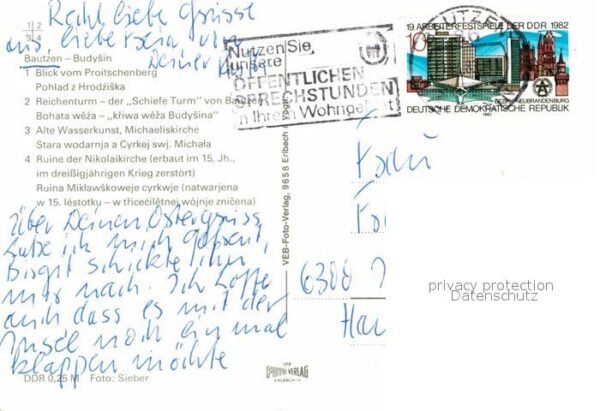 Recht liebe Grüsse
aus, liebe von
Deiner
1 2
3 4
Bautzen – Budyšin
1 Blick vom Proitschenberg
Pohlad z Hrodźiška
2 Reichenturm – der „Schiefe Turm“ von Bautzen
Bohata wěža – „křiwa wěža Budyšina“
3 Alte Wasserkunst, Michaeliskirche
Stara wodarnja a Cyrkej swj. Michała
4 Ruine der Nikolaikirche (erbaut im 15. Jh.,
im dreißigjährigen Krieg zerstört)
Ruina Mikławškoweje cyrkwje (natwarjena
w 15. lěstotku – w třicećilětnej wójnje zničena)
Über Deinen Ostergruss
habe ich mich gefreut,
Birgit schickte ihn
mir nach. Ich hoffe
auch dass es mit der
Insel noch einmal
klappen möchte
DDR 0,25 M Foto: Sieber
VEB-Foto-Verlag, 9658 Erlbach i. Vogtl.
FOTO VERLAG
ERLBACH
Nutzen Sie
unsere
ÖFFENTLICHEN
SPRECHSTUNDEN
in Ihrem Wohngebiet
19. ARBEITERFESTSPIELE DER DDR 1982
10
BEZIRK NEUBRANDENBURG
DEUTSCHE DEMOKRATISCHE REPUBLIK
1982
Frau
6300
privacy protection
Datenschutz